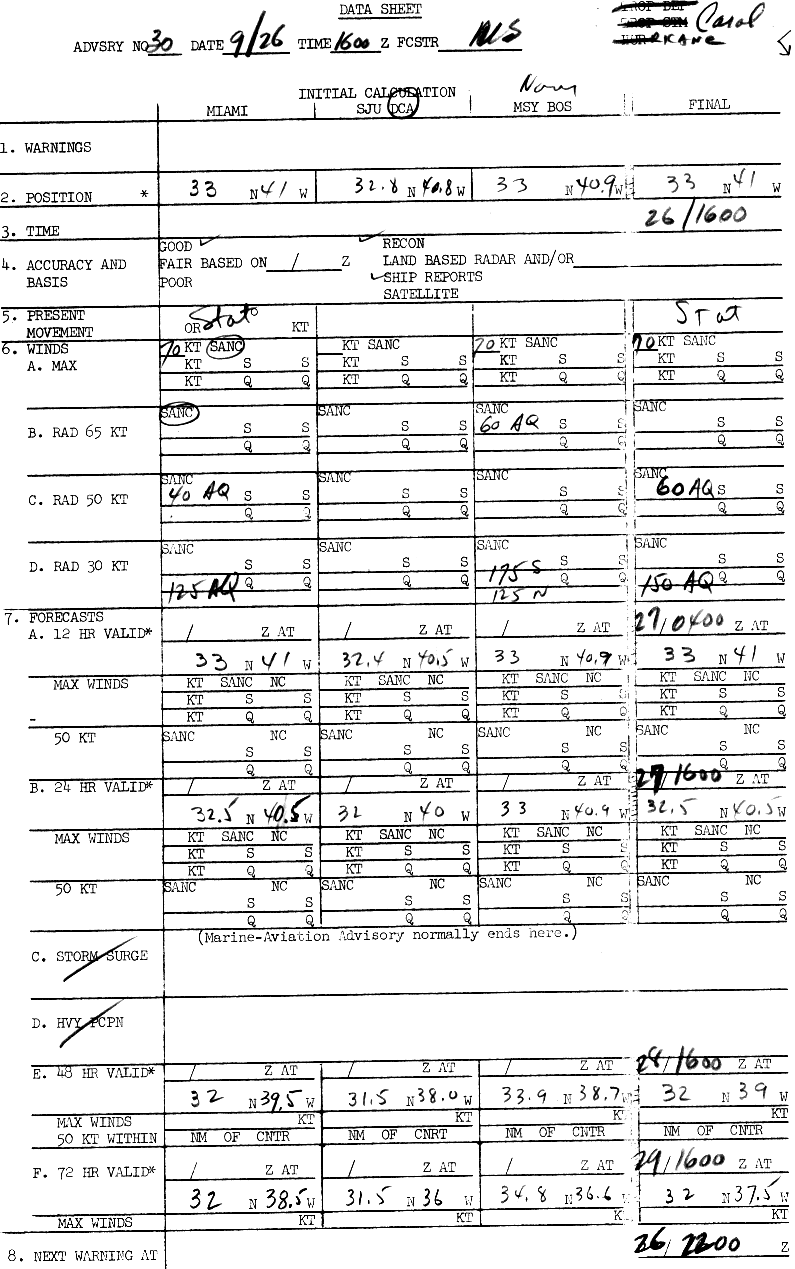 DATA SHEET
ADVSRY NO 30 DATE 9/26 TIME 1600 Z FCSTR
Carol
HURRKANE
INITIAL CALCULATION
MIAMI SJU DCA MSY BOS FINAL
1. WARNINGS
2. POSITION * 33 N 41 W 32.8 N 40.8 W 33 N 40.9 W 33 N 41 W
3. TIME 26/1600
4. ACCURACY AND BASIS
GOOD ✓ ✓ RECON
FAIR BASED ON / Z LAND BASED RADAR AND/OR
POOR ✓ SHIP REPORTS
SATELLITE
5. PRESENT MOVEMENT OR Stat KT Stat
6. WINDS 70 KT SANC KT SANC 70 KT SANC 70 KT SANC
A. MAX KT S S KT S S KT S S KT S S
KT Q Q KT Q Q KT Q Q KT Q Q
SANC SANC SANC SANC
B. RAD 65 KT S S S S 60 AQ S S
Q Q Q Q Q Q Q Q
SANC SANC SANC SANC
C. RAD 50 KT 40 AQ S S S S S S 60 AQ S S
Q Q Q Q Q Q Q Q
SANC SANC SANC SANC
D. RAD 30 KT S S S S 175 S S S S S
125 AQ Q Q Q Q 125 N Q Q 150 AQ Q Q
7. FORECASTS
A. 12 HR VALID* / Z AT / Z AT / Z AT 27/0400 Z AT
33 N 41 W 32.4 N 40.5 W 33 N 40.9 W 33 N 41 W
MAX WINDS KT SANC NC KT SANC NC KT SANC NC KT SANC NC
KT S S KT S S KT S S KT S S
KT Q Q KT Q Q KT Q Q KT Q Q
50 KT SANC NC SANC NC SANC NC SANC NC
S S S S S S S S
Q Q Q Q Q Q Q Q
B. 24 HR VALID* / Z AT / Z AT / Z AT 27/1600 Z AT
32.5 N 40.5 W 32 N 40 W 33 N 40.9 W 32.5 N 40.5 W
MAX WINDS KT SANC NC KT SANC NC KT SANC NC KT SANC NC
KT S S KT S S KT S S KT S S
KT Q Q KT Q Q KT Q Q KT Q Q
50 KT SANC NC SANC NC SANC NC SANC NC
S S S S S S S S
Q Q Q Q Q Q Q Q
(Marine-Aviation Advisory normally ends here.)
C. STORM SURGE
D. HVY PCPN
E. 48 HR VALID* / Z AT / Z AT / Z AT 28/1600 Z AT
32 N 39.5 W 31.5 N 38.0 W 33.9 N 38.7 W 32 N 39 W
MAX WINDS KT KT KT KT
50 KT WITHIN NM OF CNTR NM OF CNRT NM OF CNTR NM OF CNTR
F. 72 HR VALID* / Z AT / Z AT / Z AT 29/1600 Z AT
32 N 38.5 W 31.5 N 36 W 34.8 N 36.6 W 32 N 37.5 W
MAX WINDS KT KT K KT
8. NEXT WARNING AT 26/2200 Z